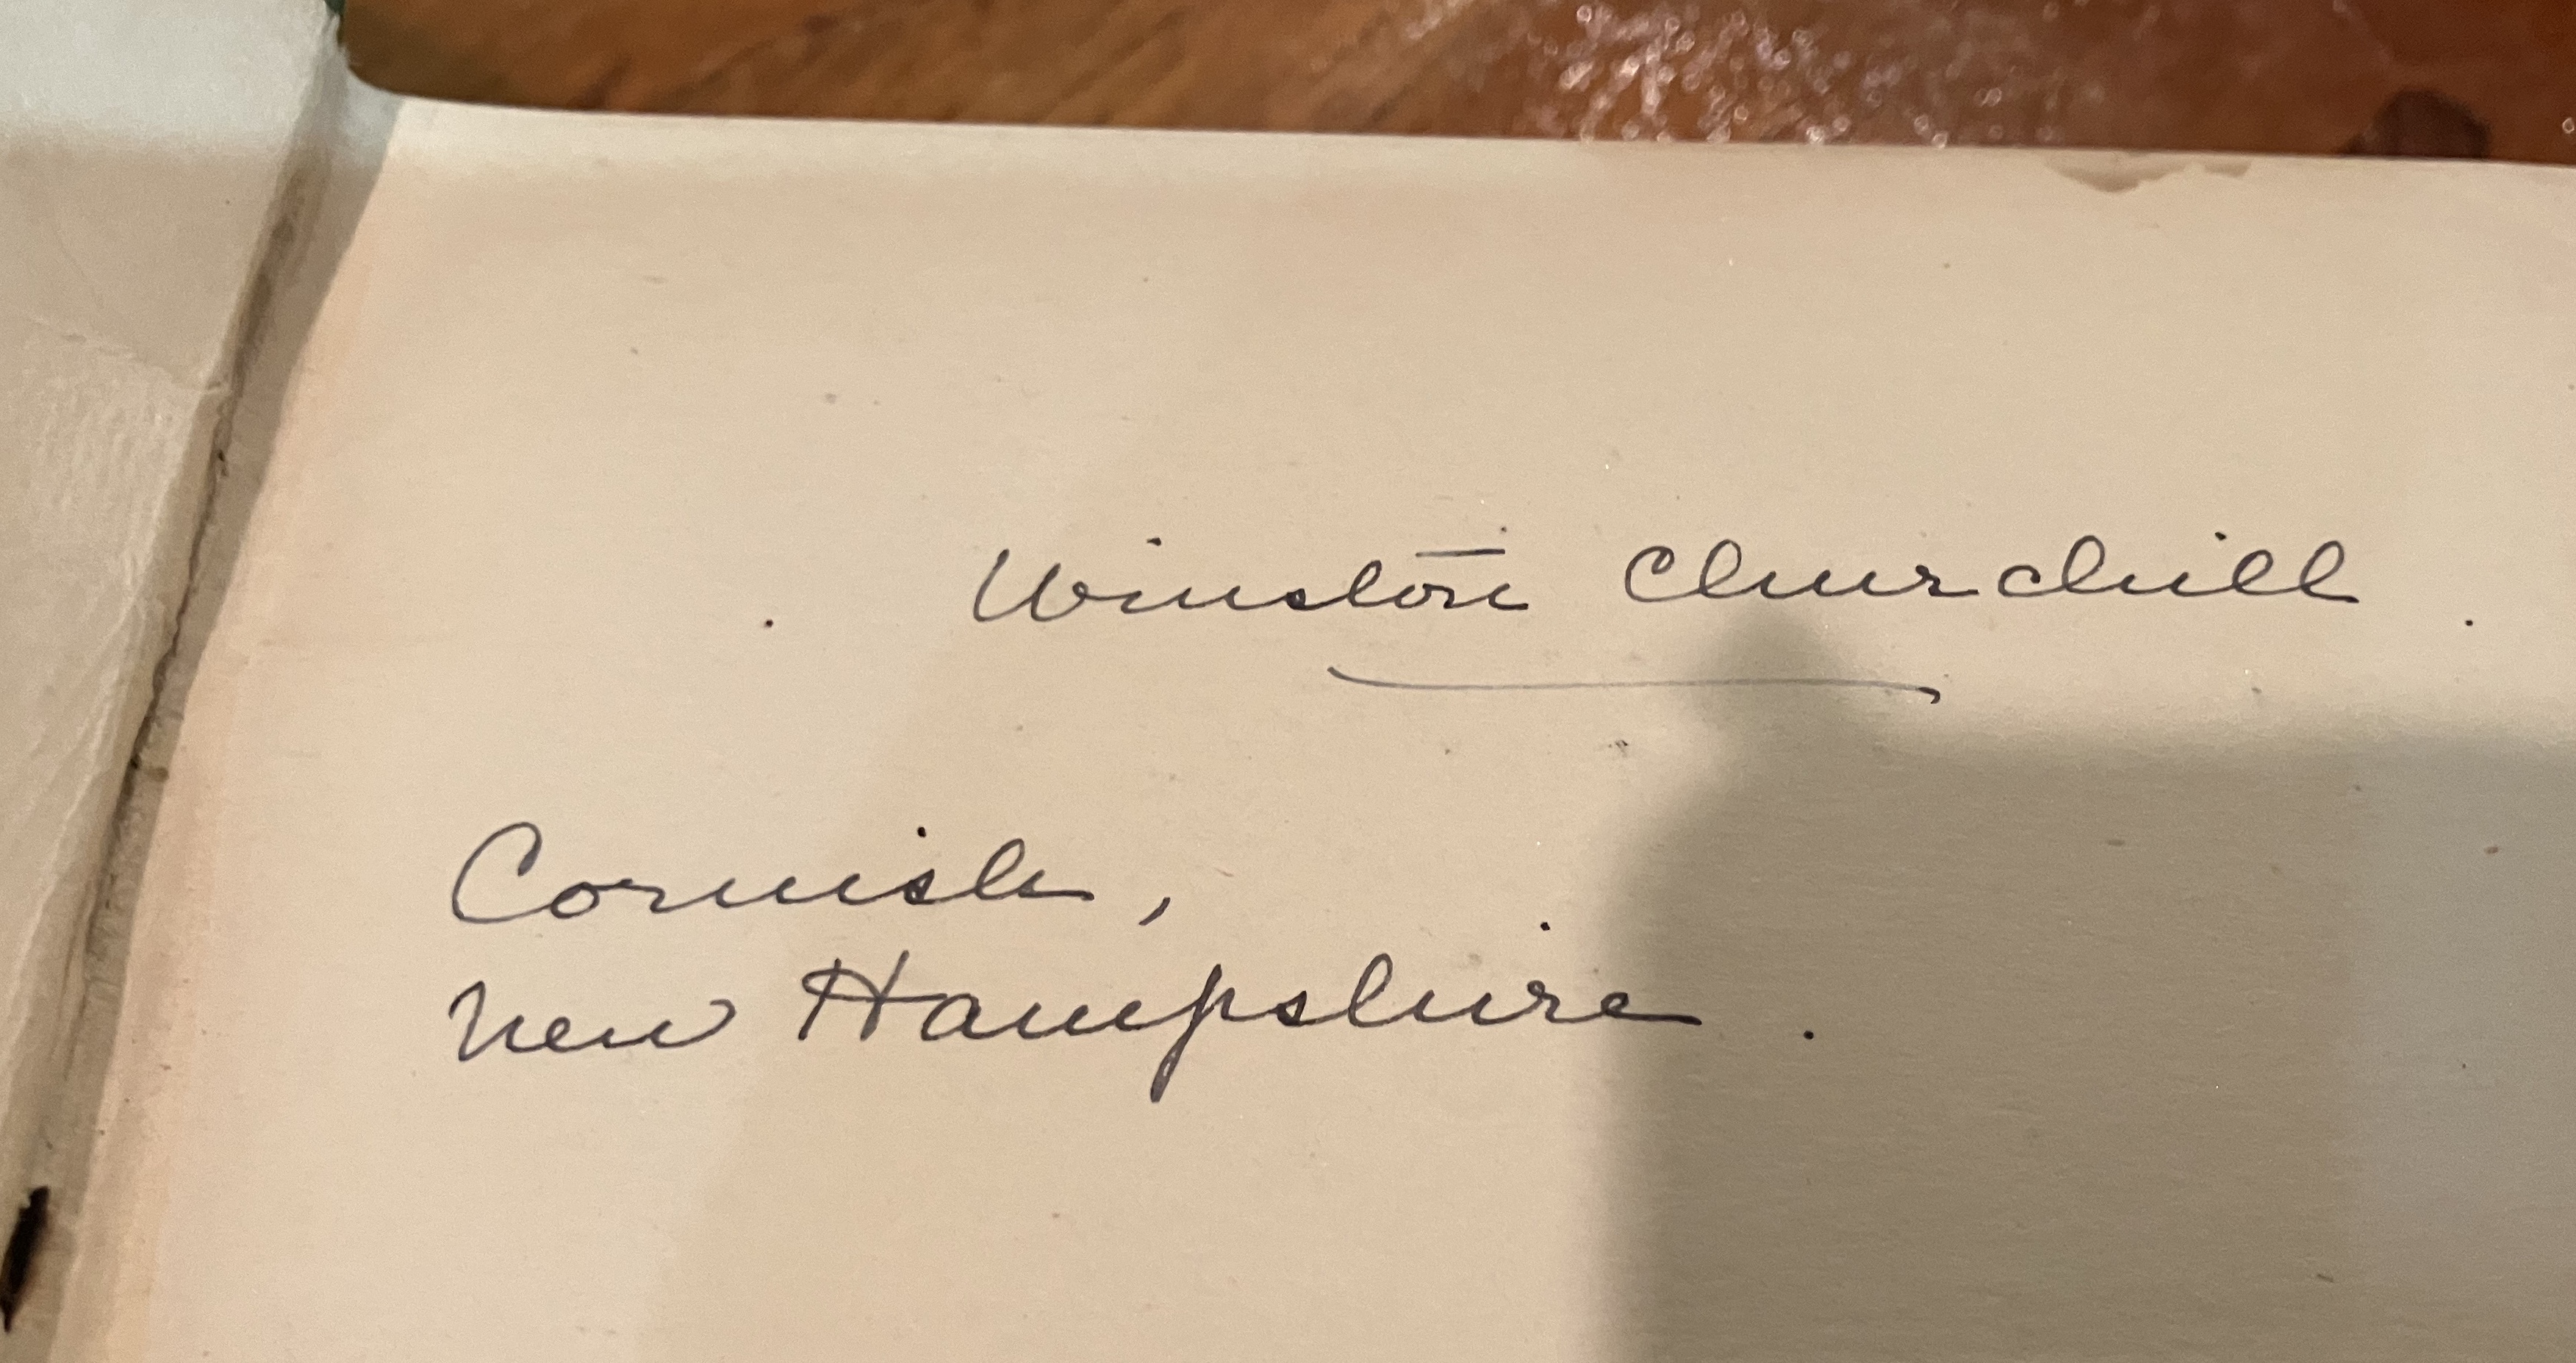 Winston Churchill.
Cornish,
New Hampshire.